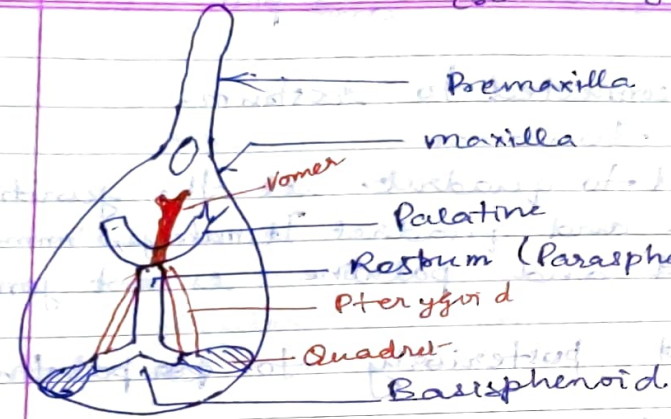 Premaxilla
maxilla
Vomer
Palatine
Rostrum (Parasphe
Pterygoid
Quadret
Basisphenoid.